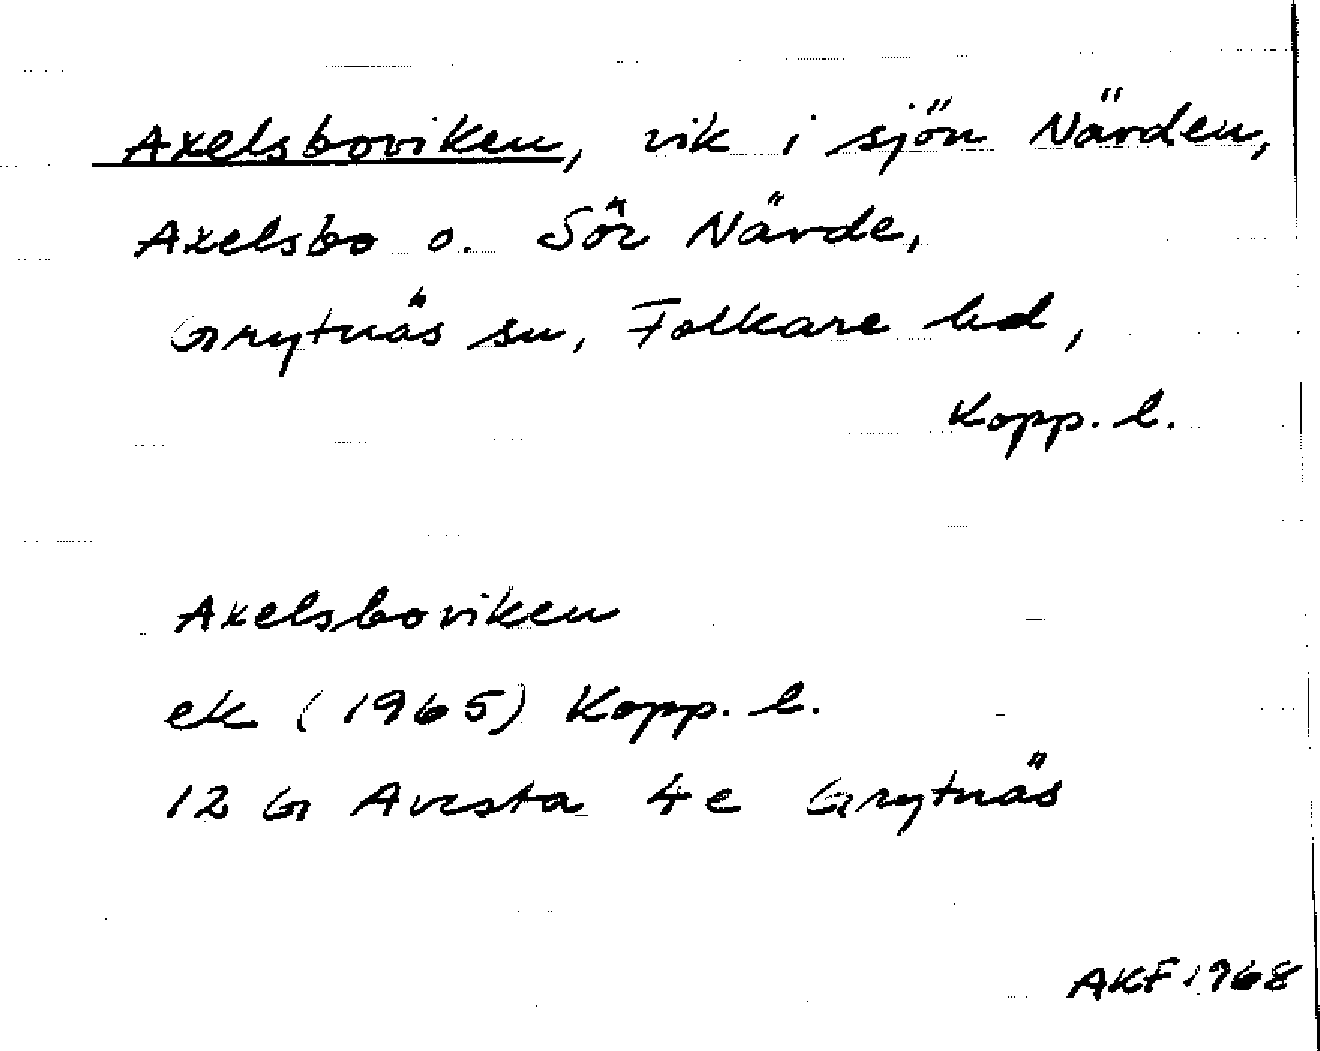 Axelsboviken, vik i sjön Närden,
Axelsbo o. Sör Närde,
Grytnäs sn, Folkare hd,
Kopp. l.
Axelsboviken
ek (1965) Kopp. l.
12 G Avesta 4 e Grytnäs
AKF 1968